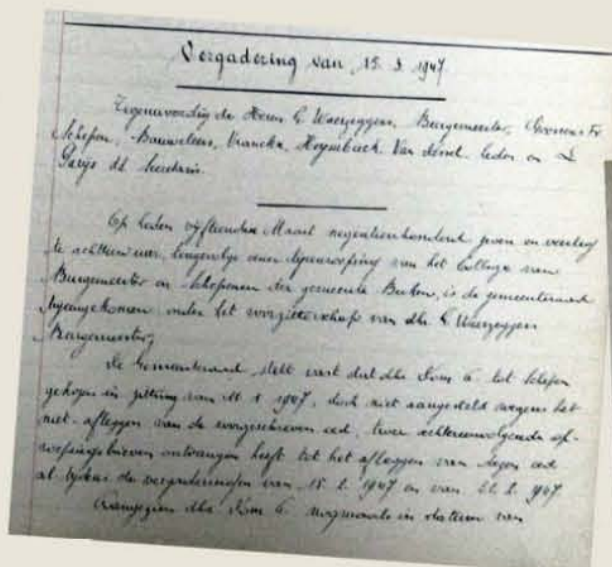 Vergadering van 15. 3. 1947
Tegenwoordig de Heren E. Waeyeggers, Burgemeester, Goovaers Fr
Schepen, Bauwelens, Vrancken, Huysebaeck, Van den leden en L
Parijs dd. Secretaris.
Op heden vijftienden Maart negentienhonderd zeven en veertig
te achttien uur, tengevolge eener bijeenroeping van het College van
Burgemeester en Schepenen der gemeente Bueken, is de gemeenteraad
bijeengekomen onder het voorzitterschap van dhr E
Burgemeester,
De Gemeenteraad stelt vast dat dhr G. tot Schepen
gekozen in zitting van 11. 1. 1947, doch niet aangesteld wegens het
niet-afleggen van de voorgeschreven eed, twee achtereenvolgende op-
roepingsbrieven ontvangen heeft tot het afleggen van dezen eed
al tijdens de vergaderingen van 15. 2. 1947 en van 22. 2. 1947
Aangezien dhr G. nogmaals in datum van